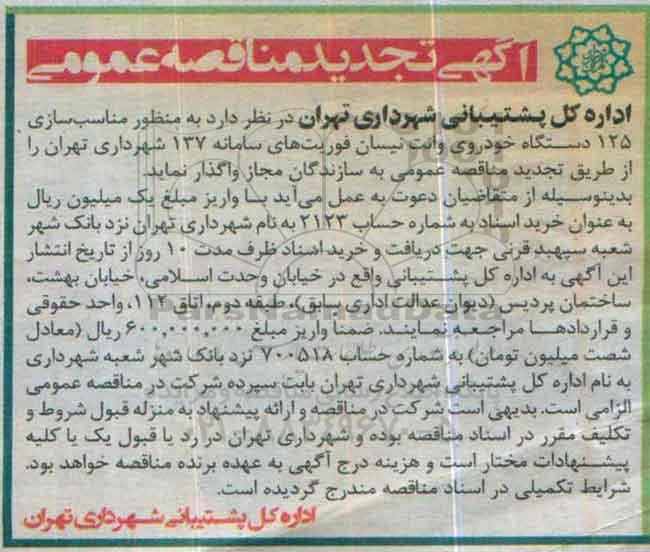 آگهی تجدید مناقصه عمومی
اداره کل پشتیبانی شهرداری تهران در نظر دارد به منظور مناسب‌سازی
۱۲۵ دستگاه خودروی وانت نیسان فوریت‌های سامانه ۱۳۷ شهرداری تهران را
از طریق تجدید مناقصه عمومی به سازندگان مجاز واگذار نماید.
بدینوسیله از متقاضیان دعوت به عمل می‌آید با واریز مبلغ یک میلیون ریال
به عنوان خرید اسناد به شماره حساب ۲۱۲۳ به نام شهرداری تهران نزد بانک شهر
شعبه سپهبد قرنی جهت دریافت و خرید اسناد ظرف مدت ۱۰ روز از تاریخ انتشار
این آگهی به اداره کل پشتیبانی واقع در خیابان وحدت اسلامی، خیابان بهشت،
ساختمان پردیس (دیوان عدالت اداری سابق)، طبقه دوم، اتاق ۱۱۲، واحد حقوقی
و قراردادها مراجعه نمایند. ضمنا واریز مبلغ ۶۰۰,۰۰۰,۰۰۰ ریال (معادل
شصت میلیون تومان) به شماره حساب ۷۰۰۵۱۸ نزد بانک شهر شعبه شهرداری
به نام اداره کل پشتیبانی شهرداری تهران بابت سپرده شرکت در مناقصه عمومی
الزامی است. بدیهی است شرکت در مناقصه و ارائه پیشنهاد به منزله قبول شروط و
تکلیف مقرر در اسناد مناقصه بوده و شهرداری تهران در رد یا قبول یک یا کلیه
پیشنهادات مختار است و هزینه درج آگهی به عهده برنده مناقصه خواهد بود.
شرایط تکمیلی در اسناد مناقصه مندرج گردیده است.
اداره کل پشتیبانی شهرداری تهران
ParsNamadData